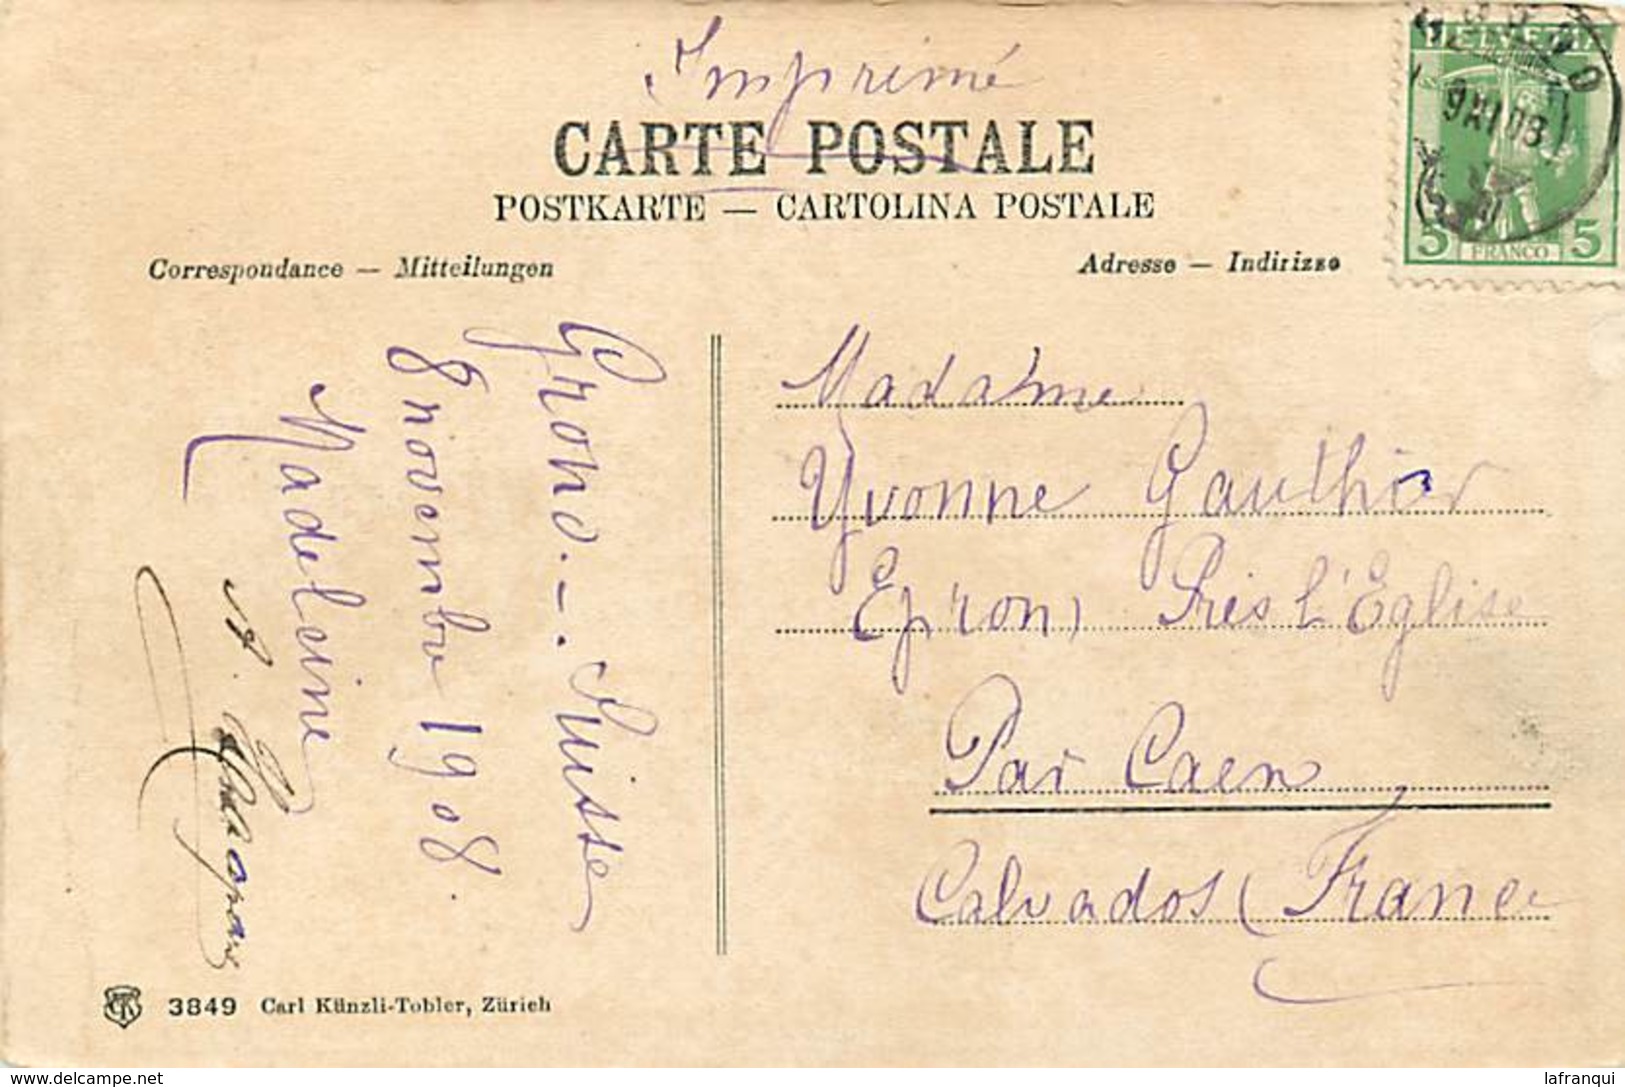 Imprimé
CARTE POSTALE
POSTKARTE — CARTOLINA POSTALE
Correspondance — Mitteilungen
Adresse — Indirizzo
HELVETIA
5 FRANCO 5
Grono. — . Suisse
8 novembre 1908.
Madeleine
Madame
Yvonne Gauthier
Epron, Près l'Eglise
Par Caen
Calvados (France
3849 Carl Künzli-Tobler, Zürich
www.delcampe.net
lafranqui